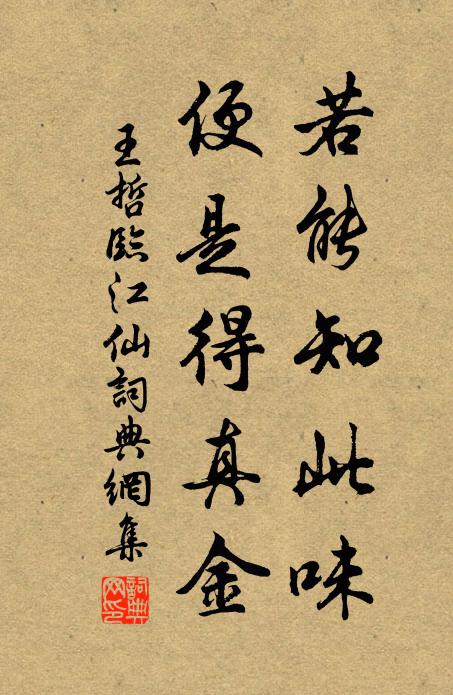 若能知此味
便是得真金
王哲臨江仙詞典網集
詞典網印